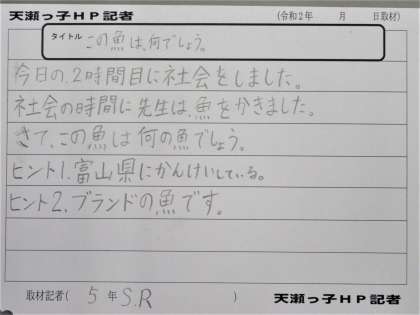 天瀬っ子HP記者
(令和2年　月　日取材)
タイトル
この魚は、何でしょう。
今日の、2時間目に社会をしました。
社会の時間に先生は、魚をかきました。
さて、この魚は何の魚でしょう。
ヒント1、富山県にかんけいしている。
ヒント2、ブランドの魚です。
取材記者(　5年 S.R　)
天瀬っ子HP記者